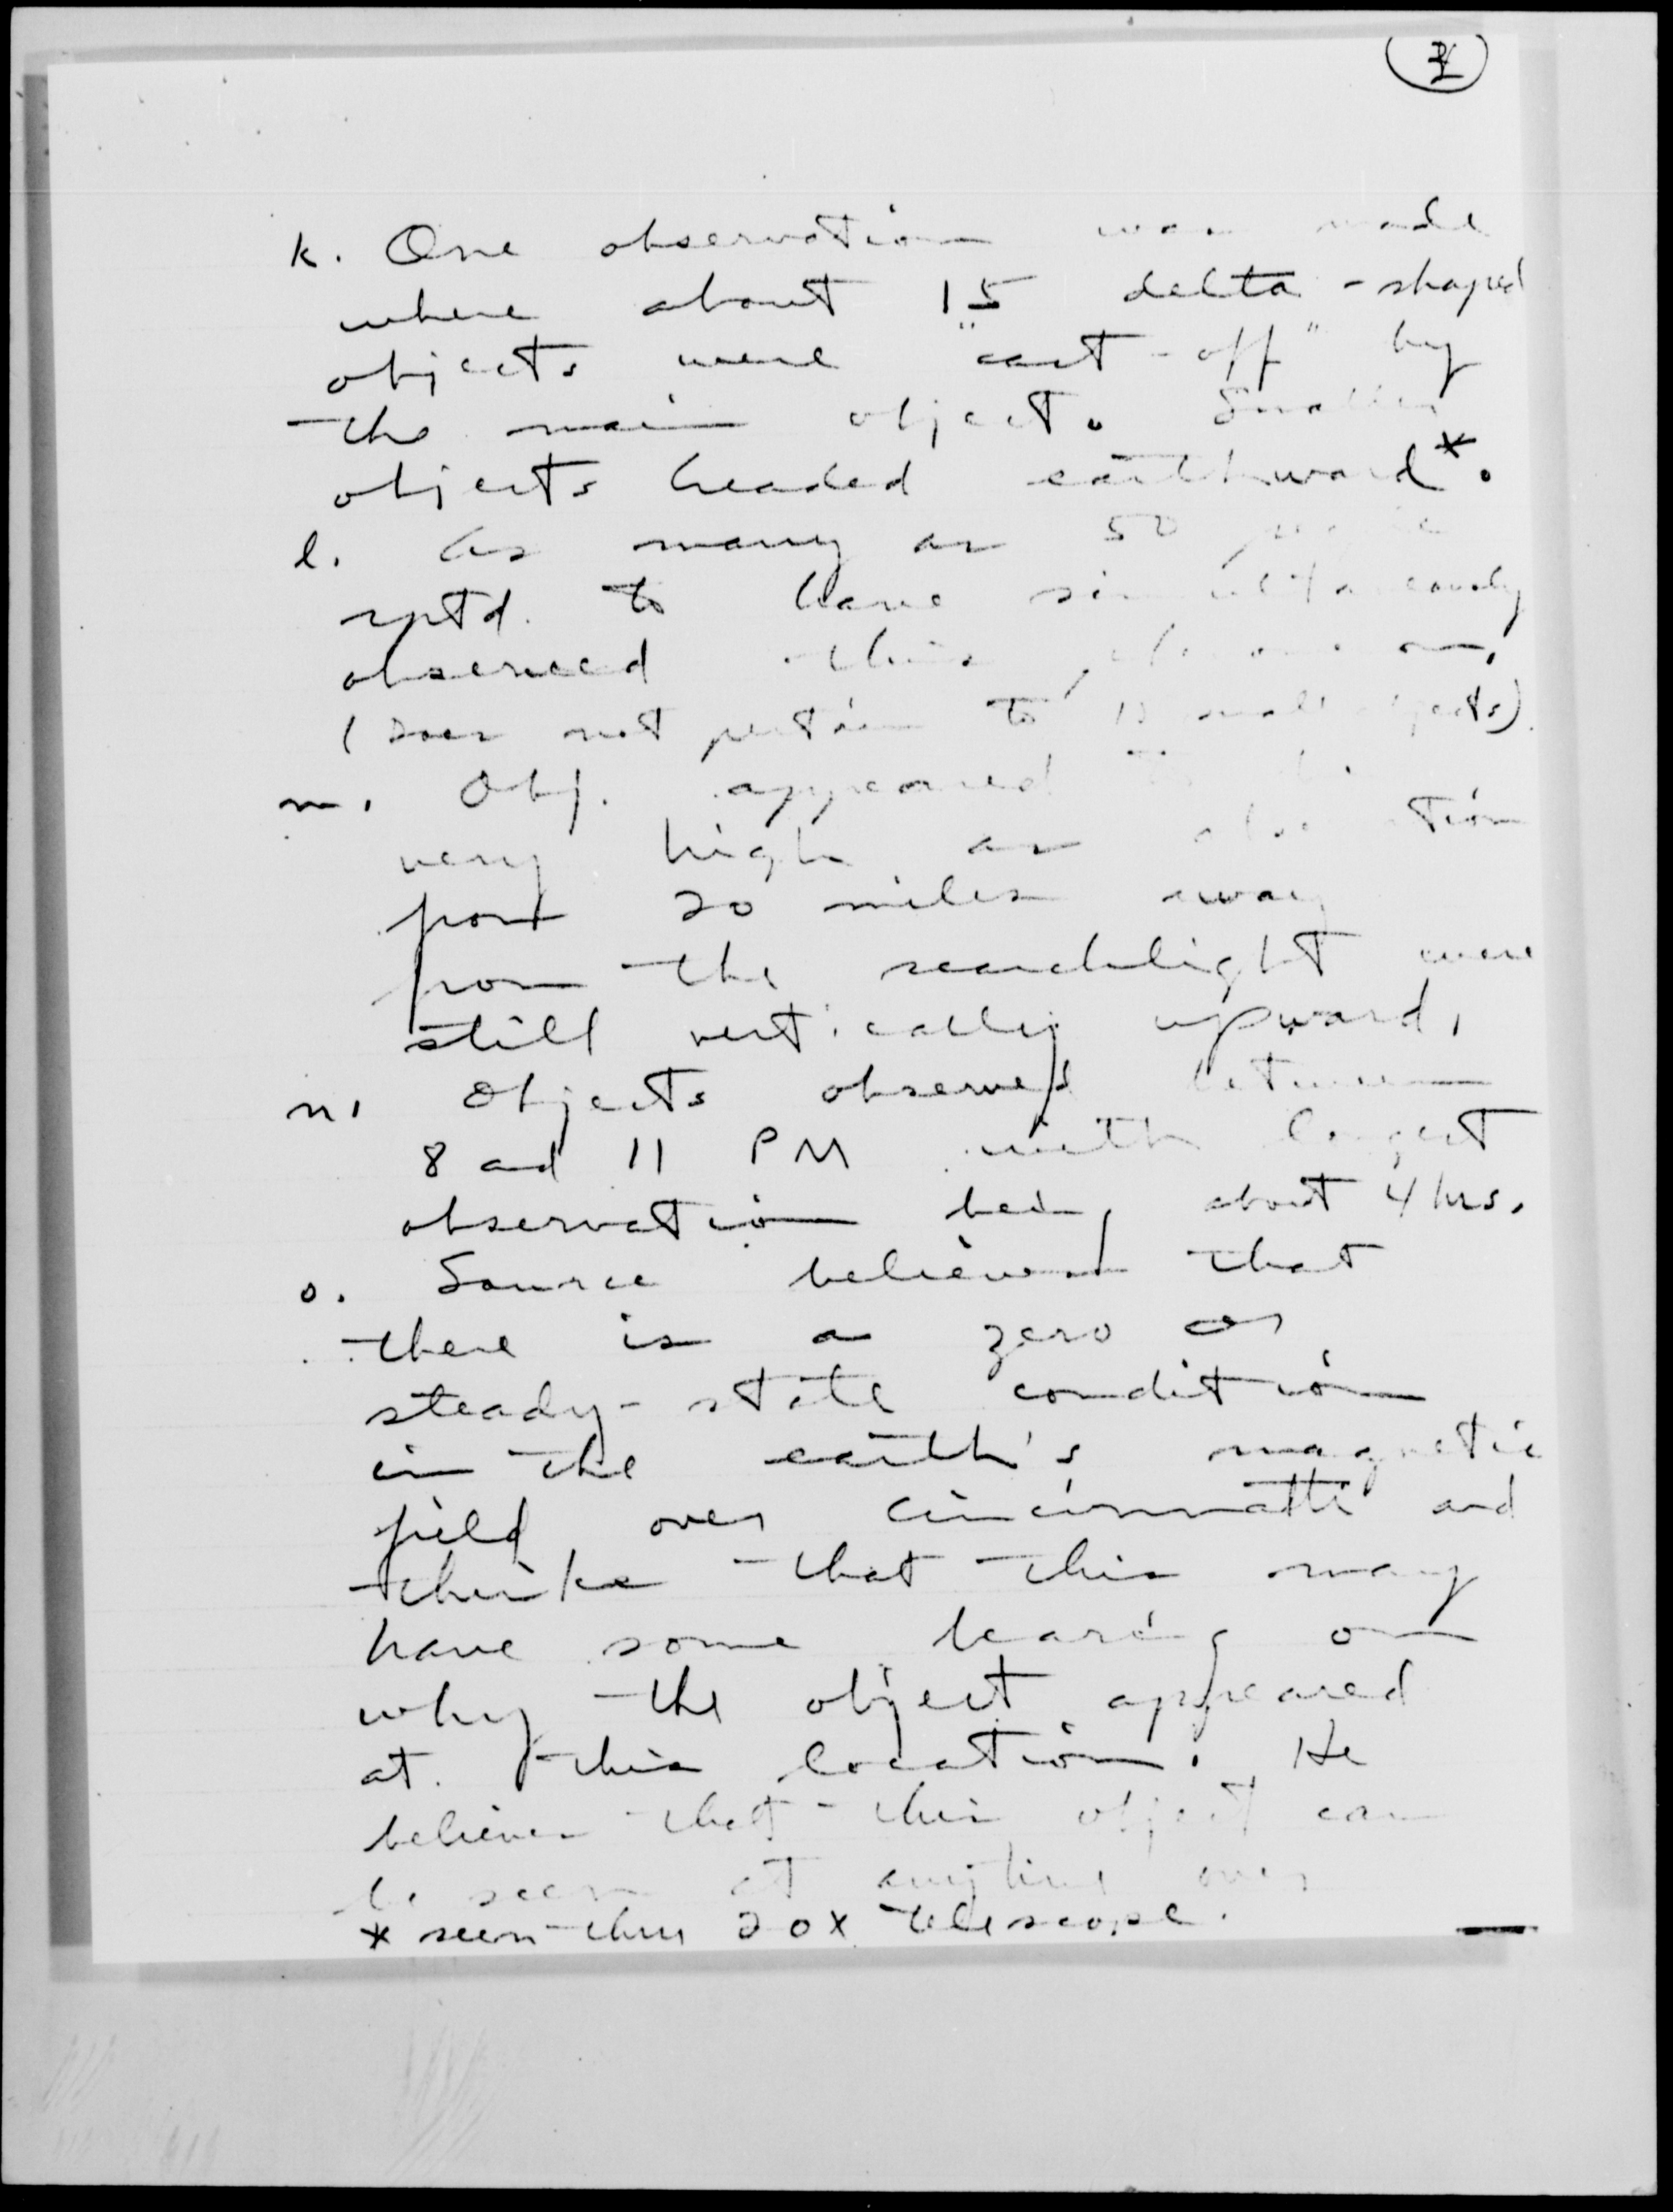 k. One observation was made
where about 15 delta-shaped
objects were "cast-off" by
the main object. Smaller
objects headed earthward*.
l. As many as 50 people
rptd. to have simultaneously
observed this phenomenon.
(Does not pertain to 15 small objects).
m. Obj. appeared to be
very high as observation
from 20 miles away
from the searchlight were
still vertically upward.
n. Objects observed between
8 and 11 PM with longest
observation being about 4 hrs.
o. Source believed that
there is a zero or
steady-state condition
in the earth's magnetic
field over Cincinnatti and
thinks that this may
have some bearing on
why the object appeared
at this location. He
believes that this object can
be seen at anytime over
* seen thru 20X telescope.